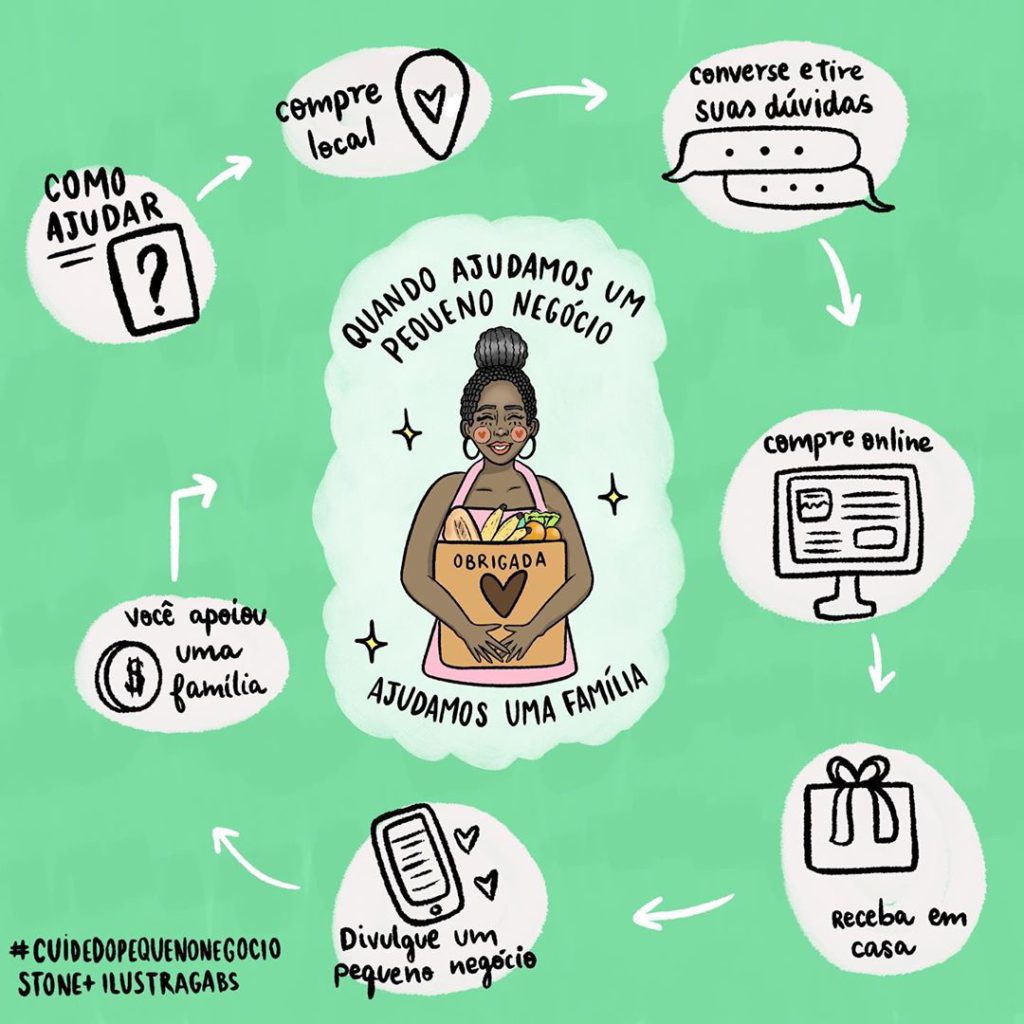 COMO
AJUDAR
?
compre
local
converse e tire
suas dúvidas
compre online
Receba em
casa
Divulgue um
pequeno negócio
você apoiou
uma
família
$
QUANDO AJUDAMOS UM
PEQUENO NEGÓCIO
OBRIGADA
AJUDAMOS UMA FAMÍLIA
#CUIDEDOPEQUENONEGOCIO
STONE+ ILUSTRAGABS